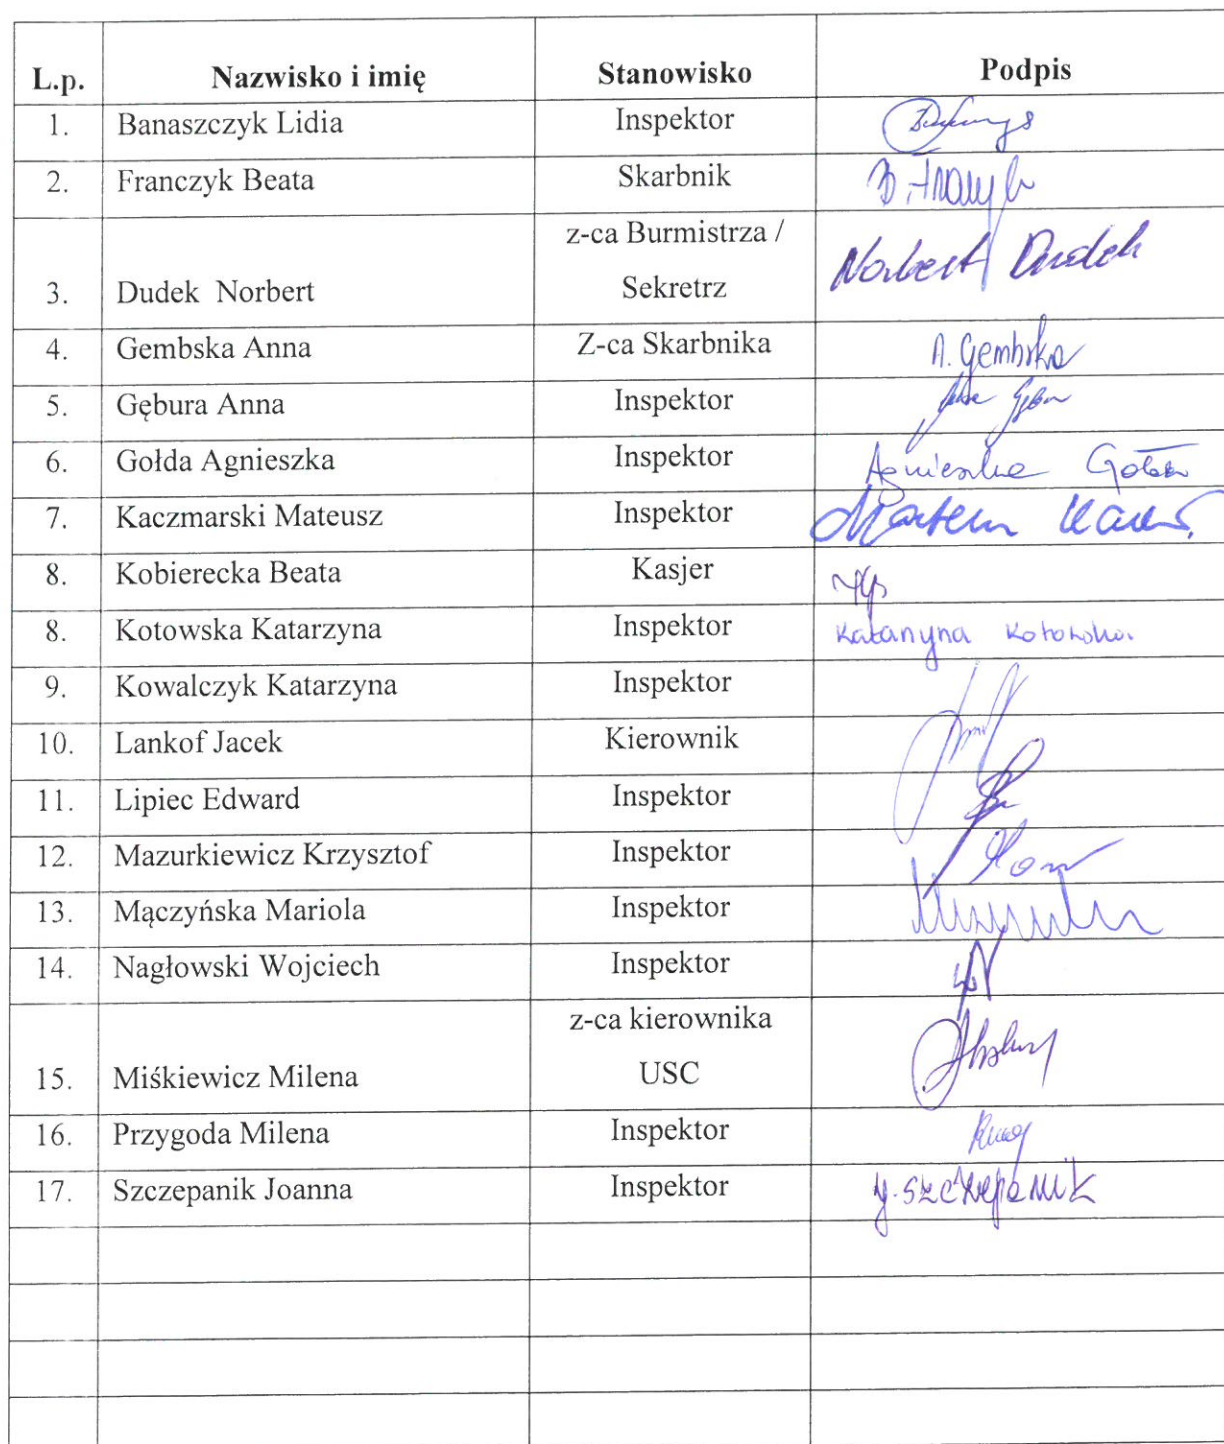 L.p. Nazwisko i imię Stanowisko Podpis
1. Banaszczyk Lidia Inspektor
2. Franczyk Beata Skarbnik
z-ca Burmistrza /
3. Dudek Norbert Sekretrz Norbert Dudek
4. Gembska Anna Z-ca Skarbnika A. Gembska
5. Gębura Anna Inspektor
6. Gołda Agnieszka Inspektor Agnieszka
7. Kaczmarski Mateusz Inspektor
8. Kobierecka Beata Kasjer
8. Kotowska Katarzyna Inspektor Katarzyna Kotowska
9. Kowalczyk Katarzyna Inspektor
10. Lankof Jacek Kierownik
11. Lipiec Edward Inspektor
12. Mazurkiewicz Krzysztof Inspektor
13. Mączyńska Mariola Inspektor
14. Nagłowski Wojciech Inspektor
z-ca kierownika
15. Miśkiewicz Milena USC
16. Przygoda Milena Inspektor
17. Szczepanik Joanna Inspektor J. Szczepanik